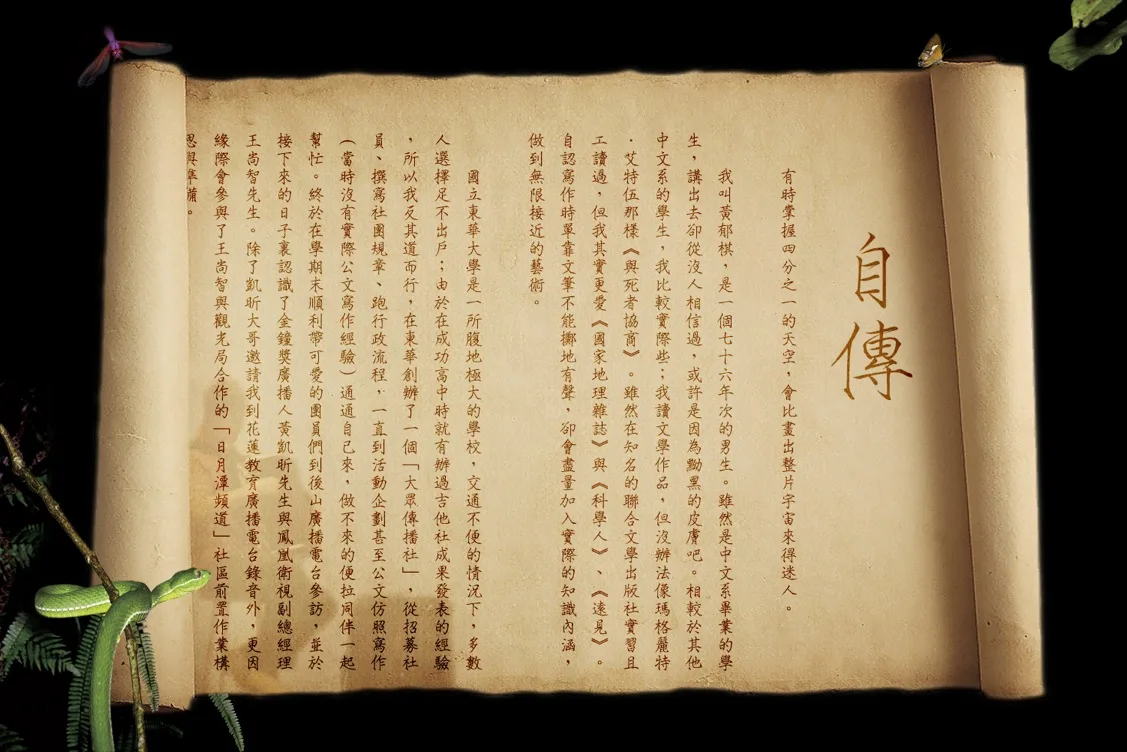 自傳
有時掌握四分之一的天空，會比畫出整片宇宙來得迷人。
我叫黃郁棋，是一個七十六年次的男生。雖然是中文系畢業的學
生，講出去卻從沒人相信過，或許是因為黝黑的皮膚吧。相較於其他
中文系的學生，我比較實際些；我讀文學作品，但沒辦法像瑪格麗特
．艾特伍那樣《與死者協商》。雖然在知名的聯合文學出版社實習且
工讀過，但我其實更愛《國家地理雜誌》與《科學人》、《遠見》。
自認寫作時單靠文筆不能擲地有聲，卻會盡量加入實際的知識內涵，
做到無限接近的藝術。
國立東華大學是一所腹地極大的學校，交通不便的情況下，多數
人選擇足不出戶；由於在成功高中時就有辦過吉他社成果發表的經驗
，所以我反其道而行，在東華創辦了一個「大眾傳播社」，從招募社
員、撰寫社團規章、跑行政流程，一直到活動企劃甚至公文仿照寫作
（當時沒有實際公文寫作經驗）通通自己來，做不來的便拉同伴一起
幫忙。終於在學期末順利帶可愛的團員們到後山廣播電台參訪，並於
接下來的日子裏認識了金鐘獎廣播人黃凱昕先生與鳳凰衛視副總經理
王尚智先生。除了凱昕大哥邀請我到花蓮教育廣播電台錄音外，更因
緣際會參與了王尚智與觀光局合作的「日月潭頻道」社區前置作業構
思與準備。